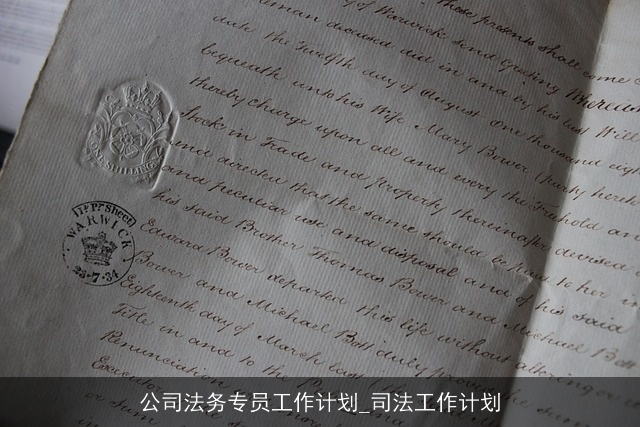 these presents shall come
of Warwick send Greeting Whereas
deceased did in and by his last Will
date the Twelfth day of August One thousand eigh
bequeath unto his Wife Mary Bower (party here
thereby charge upon all and every the Freehold and
Stock in Trade and property thereinafter devised
and directed that the same should be paid to her
and peculiar use and disposal and of his said
his said Brother Thomas Bower and Michael Bott
Edward Bower departed this life without altering
Bower and Michael Bott duly proved the
Eighteenth day of March last
Title in and to the
Renunciation
Executor
or sum
ONE SHILLING
11d Pr Sheet
WARWICK
23·7·34
公司法务专员工作计划_司法工作计划